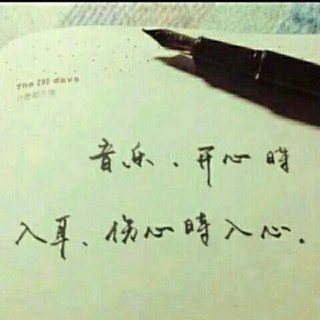 The 100 days
音乐、开心時
入耳、伤心時入心.